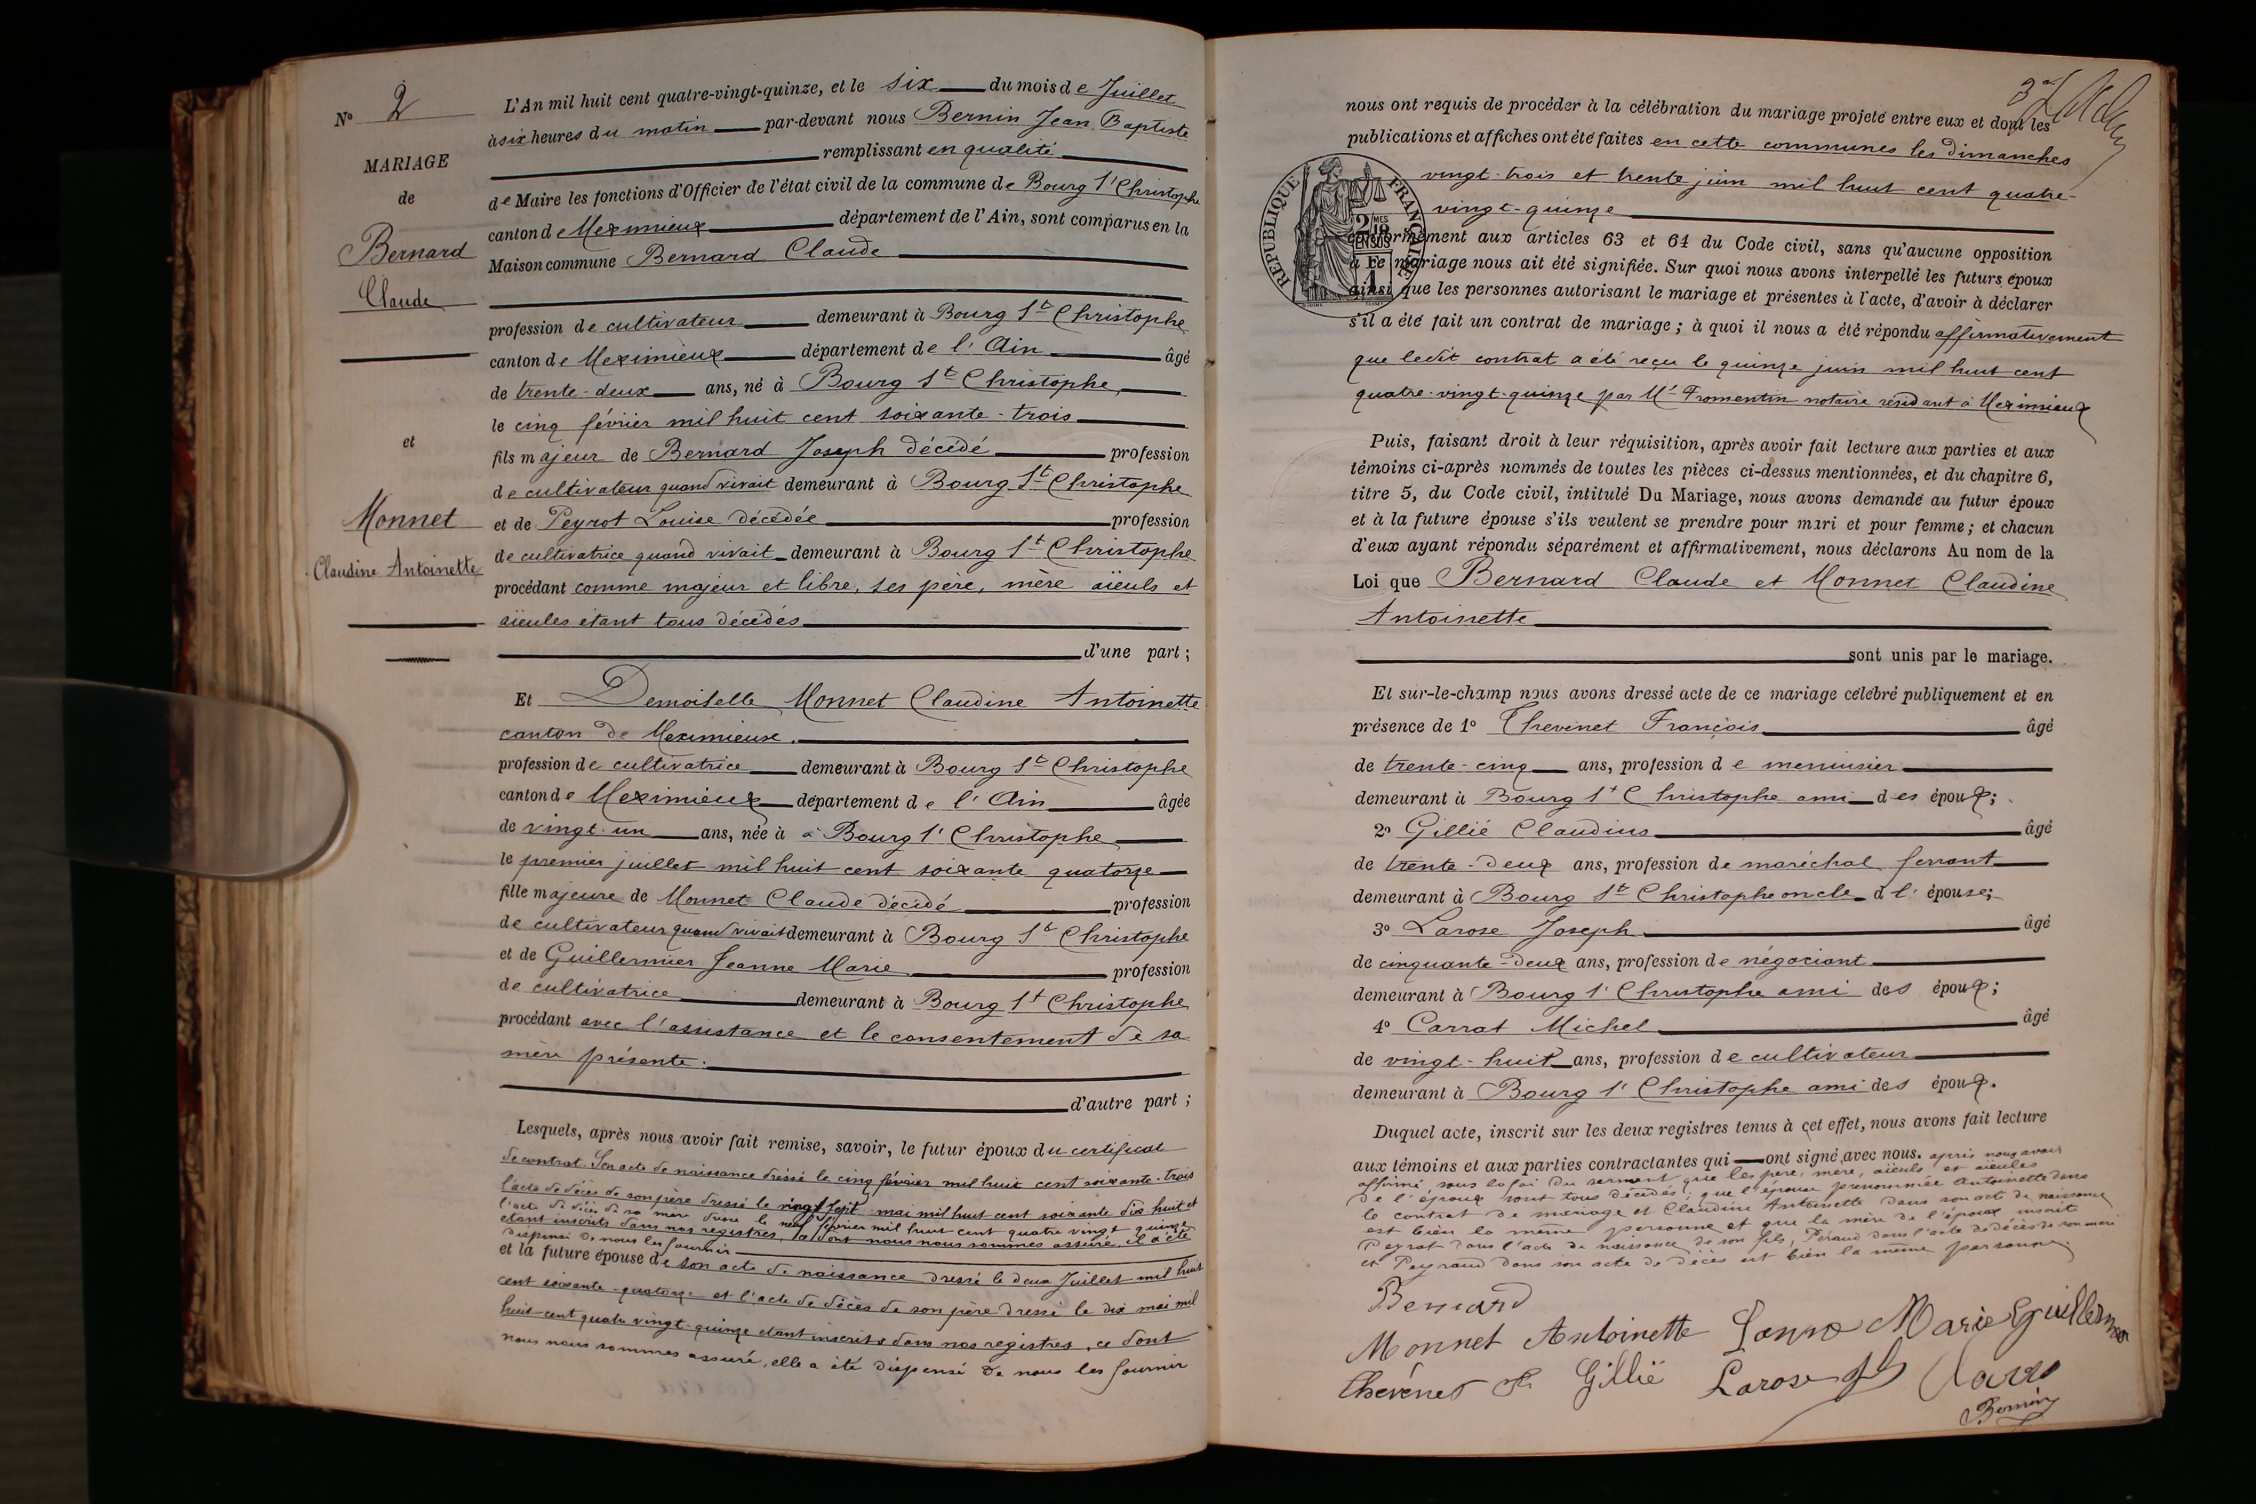 N° 2
MARIAGE
de
Bernard
Claude
et
Monnet
Claudine Antoinette
L'An mil huit cent quatre-vingt-quinze, et le six du mois de Juillet
à six heures du matin par-devant nous Bernin Jean Baptiste
remplissant en qualité
de Maire les fonctions d'Officier de l'état civil de la commune de Bourg St Christophe
canton de Meximieux département de l'Ain, sont comparus en la
Maison commune Bernard Claude
profession de cultivateur demeurant à Bourg St Christophe
canton de Meximieux département de l'Ain âgé
de trente-deux ans, né à Bourg St Christophe,
le cinq février mil huit cent soixante-trois
fils majeur de Bernard Joseph décédé profession
de cultivateur quand vivait demeurant à Bourg St Christophe
et de Peyrot Louise décédée profession
de cultivatrice quand vivait demeurant à Bourg St Christophe
procédant comme majeur et libre, ses père, mère aïeuls et
aïeules étant tous décédés
d'une part;
Et Demoiselle Monnet Claudine Antoinette
canton de Meximieux.
profession de cultivatrice demeurant à Bourg St Christophe
canton de Meximieux département de l'Ain âgée
de vingt-un ans, née à à Bourg St Christophe
le premier juillet mil huit cent soixante quatorze
fille majeure de Monnet Claude décédé profession
de cultivateur quand vivait demeurant à Bourg St Christophe
et de Guillermier Jeanne Marie profession
de cultivatrice demeurant à Bourg St Christophe
procédant avec l'assistance et le consentement de sa
mère présente.
d'autre part;
Lesquels, après nous avoir fait remise, savoir, le futur époux du certificat
de contrat. Son acte de naissance dressé le cinq février mil huit cent soixante-trois
l'acte de décès de son père dressé le vingt sept mai mil huit cent soixante dix huit et
l'acte de décès de sa mère dressé le neuf février mil huit cent quatre vingt quinze
étant inscrits dans nos registres, ce dont nous nous sommes assuré, il a été
dispensé de nous les fournir
et la future épouse de son acte de naissance dressé le deux Juillet mil huit
cent soixante-quatorze et l'acte de décès de son père dressé le dix mai mil
huit-cent quatre vingt-quinze étant inscrits dans nos registres, ce dont
nous nous sommes assuré, elle a été dispensé de nous les fournir
nous ont requis de procéder à la célébration du mariage projeté entre eux et dont les
publications et affiches ont été faites en cette communes les dimanches
vingt-trois et trente juin mil huit cent quatre-
vingt-quinze
RÉPUBLIQUE FRANÇAISE
conformément aux articles 63 et 64 du Code civil, sans qu'aucune opposition
à ce mariage nous ait été signifiée. Sur quoi nous avons interpellé les futurs époux
ainsi que les personnes autorisant le mariage et présentes à l'acte, d'avoir à déclarer
s'il a été fait un contrat de mariage; à quoi il nous a été répondu affirmativement
que ledit contrat a été reçu le quinze juin mil huit cent
quatre-vingt-quinze par Me Fromentin notaire résidant à Meximieux
Puis, faisant droit à leur réquisition, après avoir fait lecture aux parties et aux
témoins ci-après nommés de toutes les pièces ci-dessus mentionnées, et du chapitre 6,
titre 5, du Code civil, intitulé Du Mariage, nous avons demandé au futur époux
et à la future épouse s'ils veulent se prendre pour mari et pour femme; et chacun
d'eux ayant répondu séparément et affirmativement, nous déclarons Au nom de la
Loi que Bernard Claude et Monnet Claudine
Antoinette
sont unis par le mariage.
Et sur-le-champ nous avons dressé acte de ce mariage célébré publiquement et en
présence de 1° Thevenet François âgé
de trente-cinq ans, profession de menuisier
demeurant à Bourg St Christophe ami des époux;
2° Gillié Claudius âgé
de trente-deux ans, profession de maréchal ferrant
demeurant à Bourg St Christophe oncle d l'épouse;
3° Larose Joseph âgé
de cinquante-deux ans, profession de négociant
demeurant à Bourg St Christophe ami des époux;
4° Carrat Michel âgé
de vingt-huit ans, profession de cultivateur
demeurant à Bourg St Christophe ami des époux.
Duquel acte, inscrit sur les deux registres tenus à cet effet, nous avons fait lecture
aux témoins et aux parties contractantes qui ont signé avec nous. après nous avoir
affirmé sous la foi du serment que les père, mère, aïeuls et aïeules
de l'époux sont tous décédés; que l'épouse prénommée Antoinette dans
le contrat de mariage et Claudine Antoinette dans son acte de naissance
est bien la même personne et que la mère de l'époux inscrite
Peyrat dans l'acte de naissance de son fils, Péraud dans l'acte de décès de son mari
et Peyraud dans son acte de décès est bien la même personne.
Bernard
Monnet Antoinette Jeanne Marie Guillermier
Thevenet Gillié Larose Carra
Bernin